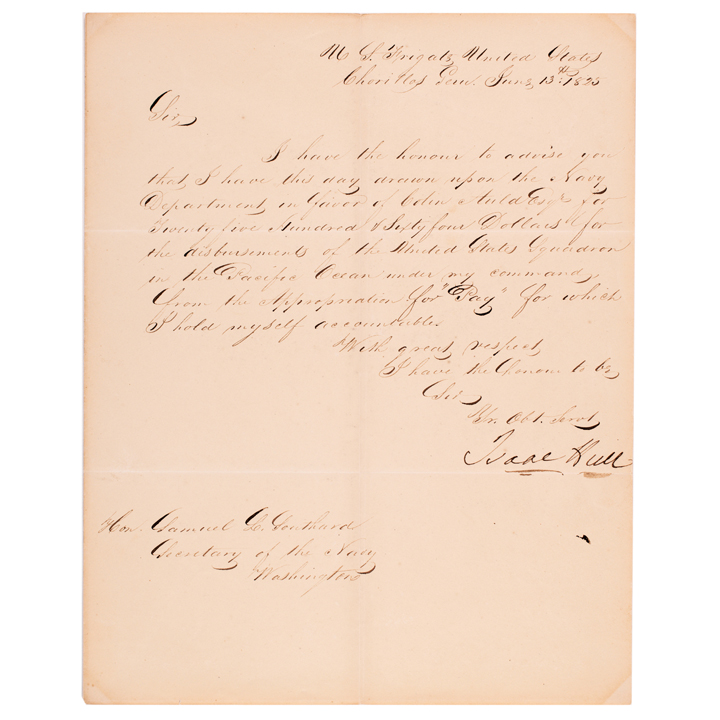 U S. Frigate United States
Chorillos Peru. June 13th 1825
Sir,
I have the honour to advise you
that I have this day drawn upon the Navy
Department in favor of Colin Auld Esqr for
Twenty five Hundred & Sixty four Dollars for
the disbursements of the United States Squadron
in the Pacific Ocean under my command,
from the Appropriation for "Pay" for which
I hold myself accountable.
With great respect
I have the Honour to be
Sir
Yr. Obt. Servt
Isaac Hull
Hon. Samuel L. Southard
Secretary of the Navy
Washington